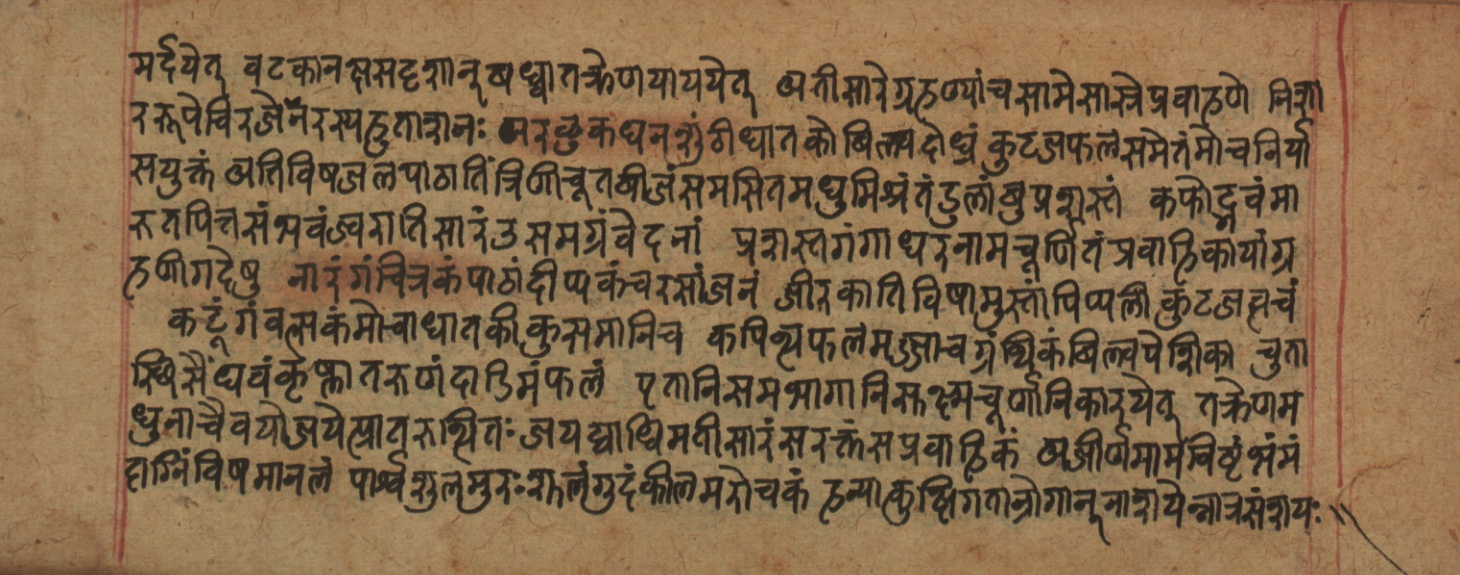 मर्दयेत् वटकानक्षसदृशान् बध्वातक्रेणपाययेत् अतीसारेग्रहण्यांचसामेसास्त्रेप्रवाहणे निशा
ररूपेविरजेनॅरस्पहुताशनः अरलुकघनशुंठीधातकीबिल्वदोध्रं कुटजफलसमेतंमोचनिर्या
सयुक्तं अतिविषजलपाठातिंत्रिणीचूतबीजंसमसितमधुमिश्रंतंडुलांबुप्रशस्तं कफोद्भवंमा
रुतपित्तसंभवंज्वरातिसारंउसमग्रंवेदनां प्रशस्तगंगाधरनामचूर्णितंप्रवाहिकायांग्र
हणीगदेषु नारंगंचित्रकंपाठांदीप्यकंचरसांजनं जीरकातिविषामुस्तांपिप्पली कुटजत्वचं
कटूंगंवत्सकंमोचाधातकीकुसमानिच कपित्थफलमज्जाचग्रंथिकंबिल्वपेशिका चुता
स्थिसैंधवंकृष्णातरुणंदाडिमंफलं एतानिसमभागानिसूक्ष्मचूर्णानिकारयेत् तक्रेणम
धुनाचैवयोजयेत्प्रातरुत्थितः जयद्व्याधिमतीसारंसरक्तंसप्रवाहिकं अजीर्णमामंविष्टंभंमं
दाग्निंविषमानलं पार्श्वशुलमुरःशूलंगुदंकीलमरोचकं हन्यात्कुक्षिगतान्रोगान्नाशयेन्नात्रसंशयः॥